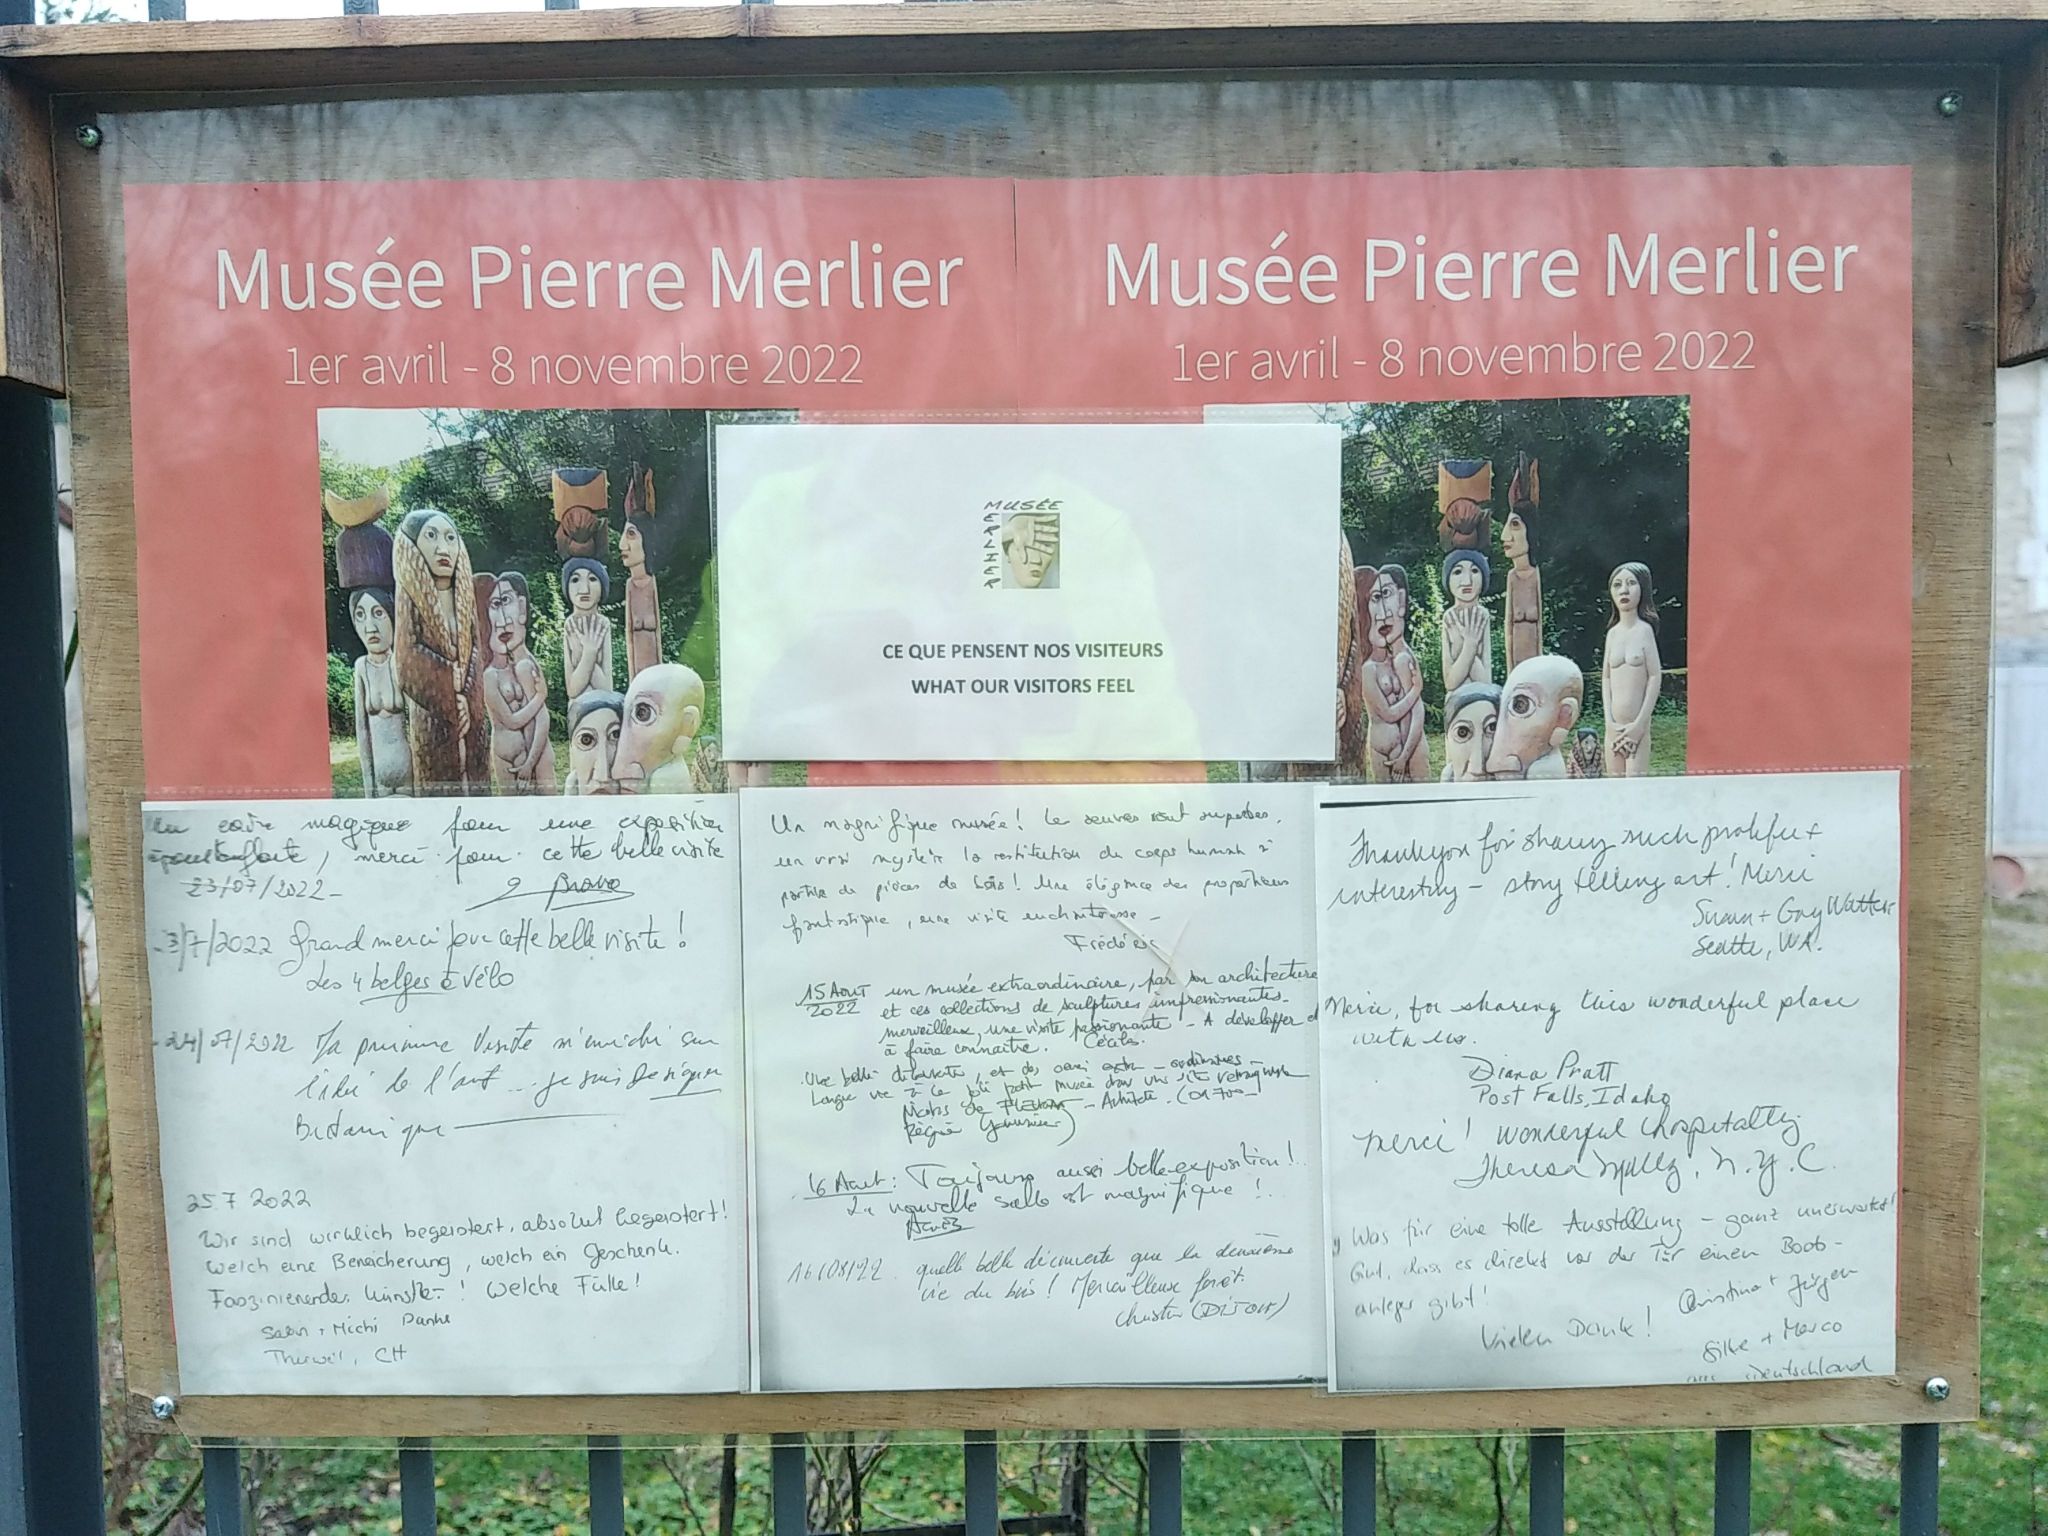 Musée Pierre Merlier
1er avril - 8 novembre 2022
Musée Pierre Merlier
1er avril - 8 novembre 2022
MUSÉE
MERLIER
CE QUE PENSENT NOS VISITEURS
WHAT OUR VISITORS FEEL
magique pour une exposition
merci pour cette belle visite
23/07/2022 -
Bravo
3/7/2022 Grand merci pour cette belle visite !
Les 4 belges à vélo
24/07/2022 Ma première visite m'enrichi sur
l'idée de l'art ... je suis designer
Botanique
25 7 2022
Wir sind wirklich begeistert, absolut begeistert!
Welch eine Bereicherung, welch ein Geschenk.
Faszinierender Künstler! Welche Fülle!
+ Michi Danke
Therwil, CH
Un magnifique musée ! Les œuvres sont superbes,
un vrai mystère la restitution du corps humain à
partir de pièces de bois ! Une élégance des proportions
fantastique, une visite enchanteresse -
Frédéric
15 Août un musée extraordinaire, par son architecture
2022 et ces collections de sculptures impressionnantes.
merveilleux, une visite passionante - A développer
à faire connaitre. Cécile.
Une belle découverte, et des
Longue vie à ce joli petit musée dans un site
Nicolas de
16 Août : Toujours aussi belle exposition !
La nouvelle salle est magnifique !
Agnès
16/08/22 quelle belle découverte que la deuxième
vie du bois ! Merveilleuse forêt.
Christin (DIJON)
Thank you for sharing such prolific +
interesting - story telling art! Merci
Susan + Gay Watters
Seattle, WA.
Merci, for sharing this wonderful place
with us.
Diana Pratt
Post Falls, Idaho
Merci! Wonderful hospitality
Theresa N.Y.C.
Was für eine tolle Ausstellung - ganz unerwartet!
Gut, dass es direkt vor der Tür einen Boots-
anleger gibt!
Vielen Dank! Christina + Jürgen
Silke + Marco
Deutschland